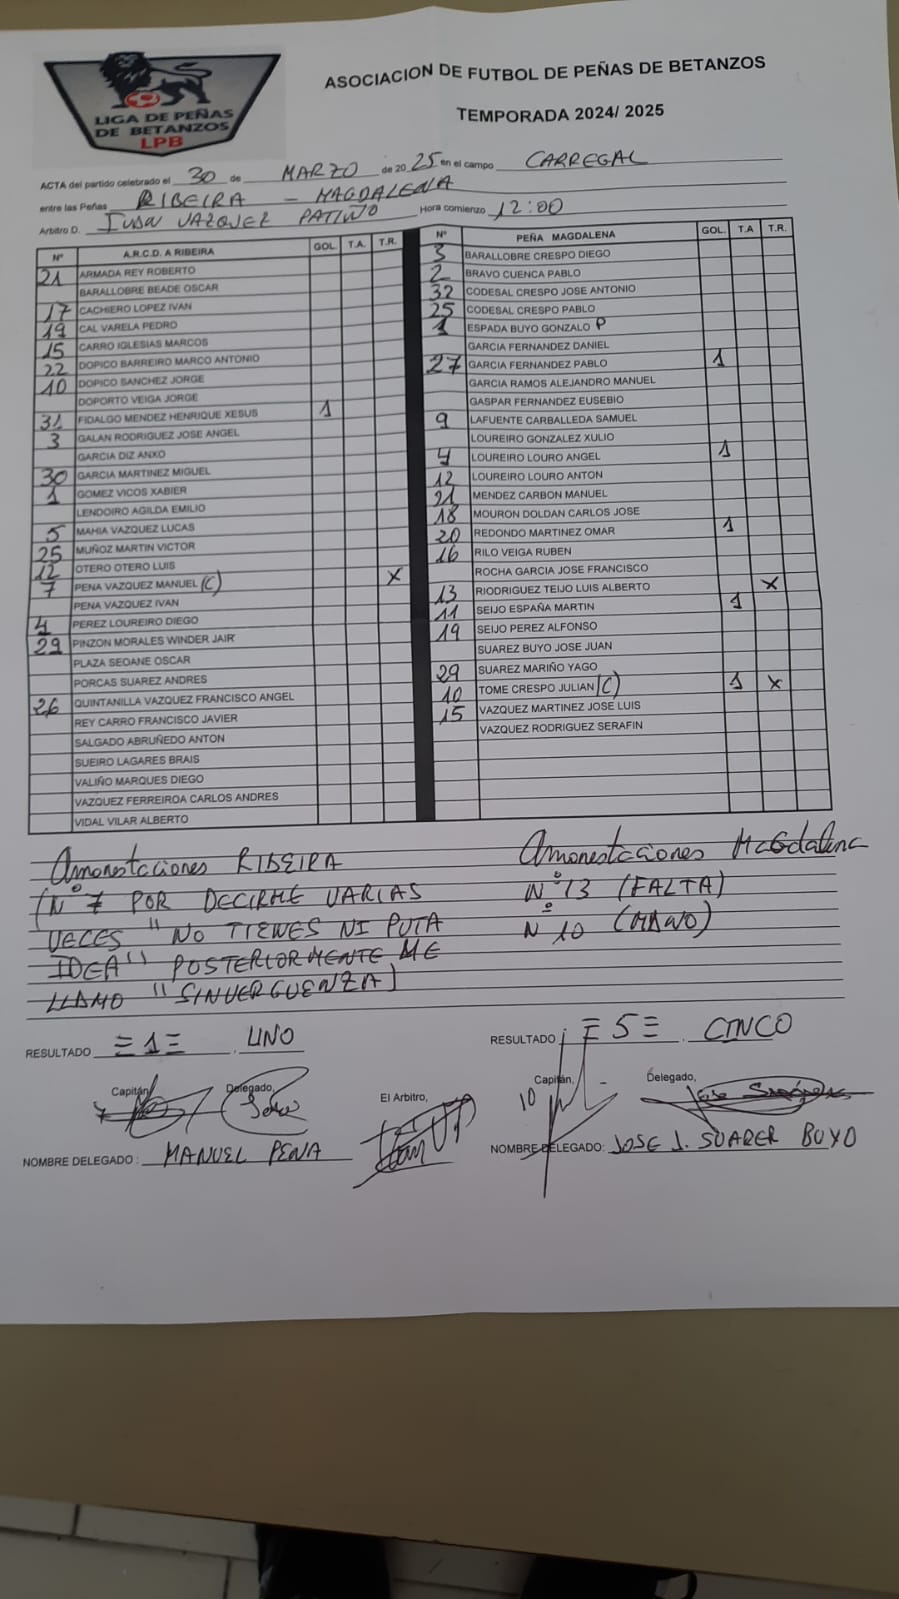 LIGA DE PEÑAS
DE BETANZOS
LPB
ASOCIACION DE FUTBOL DE PEÑAS DE BETANZOS
TEMPORADA 2024/ 2025
ACTA del partido celebrado el 30 de MARZO de 20 25 en el campo CARREGAL
entre las Peñas RIBEIRA - MAGDALENA
Arbitro D. IVAN VAZQUEZ PATIÑO Hora comienzo 12:00
Nº A.R.C.D. A RIBEIRA GOL. T.A. T.R.
21 ARMADA REY ROBERTO
BARALLOBRE BEADE OSCAR
17 CACHIERO LOPEZ IVAN
19 CAL VARELA PEDRO
15 CARRO IGLESIAS MARCOS
22 DOPICO BARREIRO MARCO ANTONIO
10 DOPICO SANCHEZ JORGE
DOPORTO VEIGA JORGE
31 FIDALGO MENDEZ HENRIQUE XESUS 1
3 GALAN RODRIGUEZ JOSE ANGEL
GARCIA DIZ ANXO
30 GARCIA MARTINEZ MIGUEL
1 GOMEZ VICOS XABIER
LENDOIRO AGILDA EMILIO
5 MAHIA VAZQUEZ LUCAS
25 MUÑOZ MARTIN VICTOR
12 OTERO OTERO LUIS
7 PENA VAZQUEZ MANUEL (C) X
PENA VAZQUEZ IVAN
4 PEREZ LOUREIRO DIEGO
29 PINZON MORALES WINDER JAIR
PLAZA SEOANE OSCAR
PORCAS SUAREZ ANDRES
26 QUINTANILLA VAZQUEZ FRANCISCO ANGEL
REY CARRO FRANCISCO JAVIER
SALGADO ABRUÑEDO ANTON
SUEIRO LAGARES BRAIS
VALIÑO MARQUES DIEGO
VAZQUEZ FERREIROA CARLOS ANDRES
VIDAL VILAR ALBERTO
Nº PEÑA MAGDALENA GOL. T.A T.R.
3 BARALLOBRE CRESPO DIEGO
2 BRAVO CUENCA PABLO
32 CODESAL CRESPO JOSE ANTONIO
25 CODESAL CRESPO PABLO
1 ESPADA BUYO GONZALO P
GARCIA FERNANDEZ DANIEL
27 GARCIA FERNANDEZ PABLO 1
GARCIA RAMOS ALEJANDRO MANUEL
GASPAR FERNANDEZ EUSEBIO
9 LAFUENTE CARBALLEDA SAMUEL
LOUREIRO GONZALEZ XULIO
4 LOUREIRO LOURO ANGEL 1
12 LOUREIRO LOURO ANTON
21 MENDEZ CARBON MANUEL
18 MOURON DOLDAN CARLOS JOSE
20 REDONDO MARTINEZ OMAR 1
16 RILO VEIGA RUBEN
ROCHA GARCIA JOSE FRANCISCO
13 RIODRIGUEZ TEIJO LUIS ALBERTO X
11 SEIJO ESPAÑA MARTIN 1
19 SEIJO PEREZ ALFONSO
SUAREZ BUYO JOSE JUAN
29 SUAREZ MARIÑO YAGO
10 TOME CRESPO JULIAN (C) 1 X
15 VAZQUEZ MARTINEZ JOSE LUIS
VAZQUEZ RODRIGUEZ SERAFIN
Amonestaciones RIBEIRA
(Nº 7 POR DECIRME VARIAS
VECES "NO TIENES NI PUTA
IDEA" POSTERIORMENTE ME
LLAMO "SINVERGUENZA)
Amonestaciones Magdalena
Nº 13 (FALTA)
Nº 10 (MANO)
RESULTADO =1= UNO
RESULTADO =5= CINCO
Capitán, Delegado, El Arbitro, Capitán, Delegado,
7
10
NOMBRE DELEGADO : MANUEL PENA
NOMBRE DELEGADO: JOSE J. SUAREZ BUYO